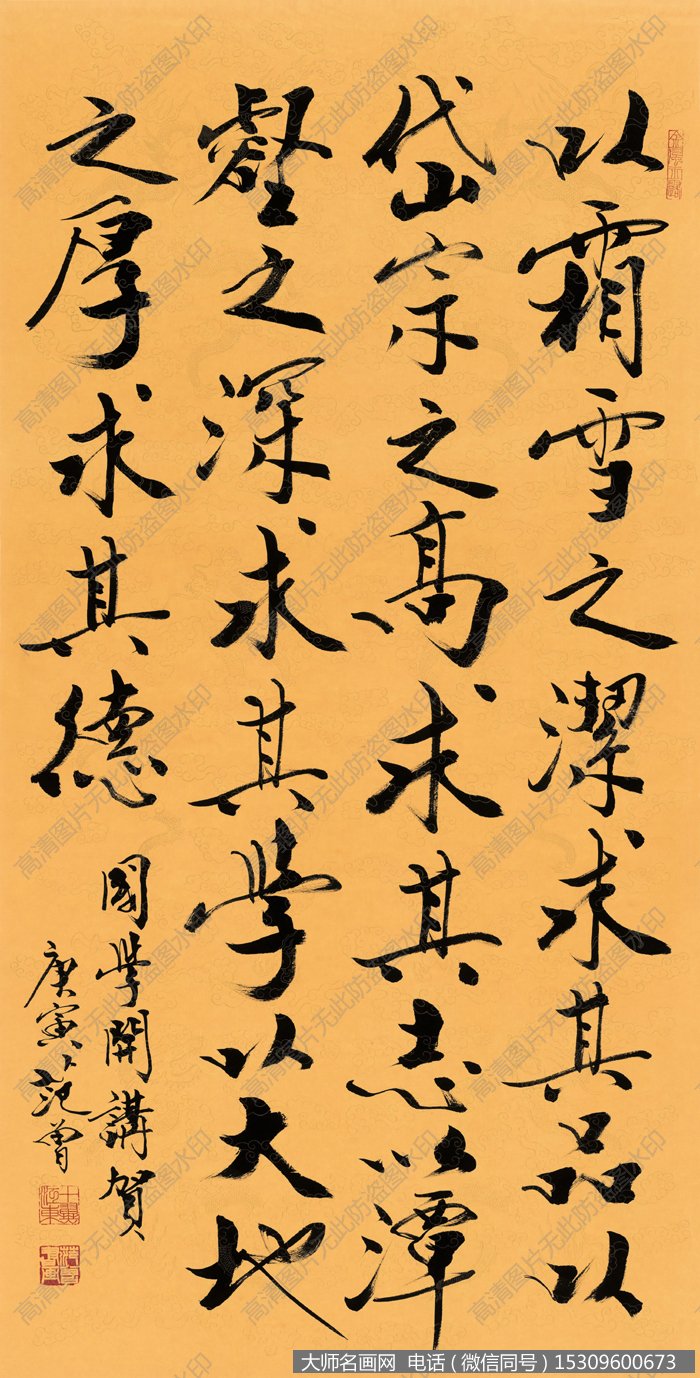 以霜雪之潔求其品以
岱宗之高求其志以潭
壑之深求其學以大地
之厚求其德
國學開講賀
庚寅范曾
大师名画网 电话（微信同号）15309600673
高清图片无此防盗图水印